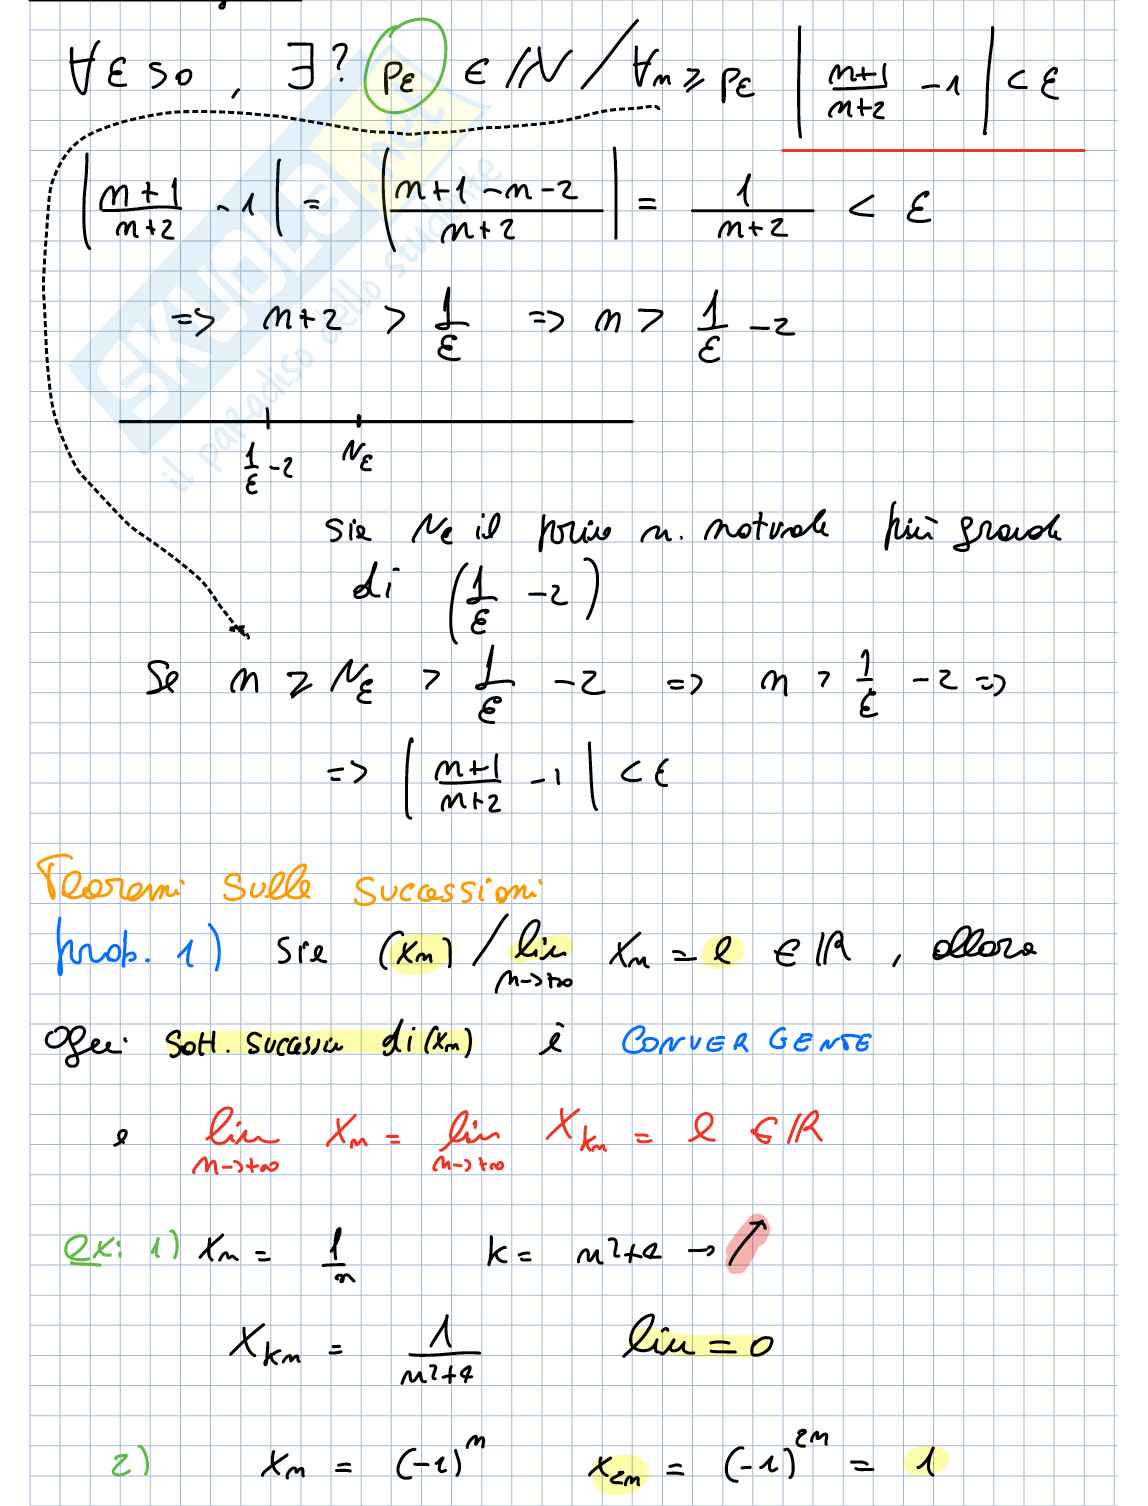 ∀ε>0, ∃? pε ∈ ℕ / ∀n ≥ pε |n+1/n+2 - 1| < ε
|n+1/n+2 - 1| = |n+1-n-2/n+2| = 1/n+2 < ε
=> n+2 > 1/ε => n > 1/ε - 2
1/ε - 2 Nε
sia Nε il primo n. naturale più grande
di (1/ε - 2)
Se n ≥ Nε > 1/ε - 2 => n > 1/ε - 2 =>
=> |n+1/n+2 - 1| < ε
Teoremi sulle successioni
prob. 1) sia (xn) / lim n->+∞ xn = l ∈ ℝ, allora
Ogni sott. successione di (xn) è CONVERGENTE
e lim n->+∞ xn = lim n->+∞ xkn = l ∈ ℝ
ex: 1) xn = 1/n k = n²+4 → ↗
xkn = 1/n²+4 lim = 0
2) xn = (-1)^n x2n = (-1)^2n = 1
SKUOLA.net
il paradiso dello studente